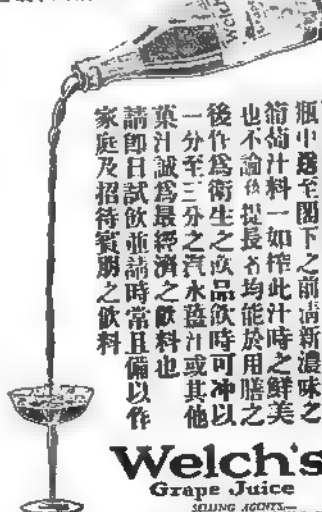 瓶中送至閣下之前清新濃味之
葡萄汁料一如榨此汁時之鮮美
也不論長者均能於用膳之
後作爲衛生之飲品飲時可冲以
一分至三分之汽水藍汁或其他
菓汁誠爲最經濟之飲料也
請卽日試飲並請時常且備以作
家庭及招待賓朋之飲料
Welch's
Grape Juice
SELLING AGENTS